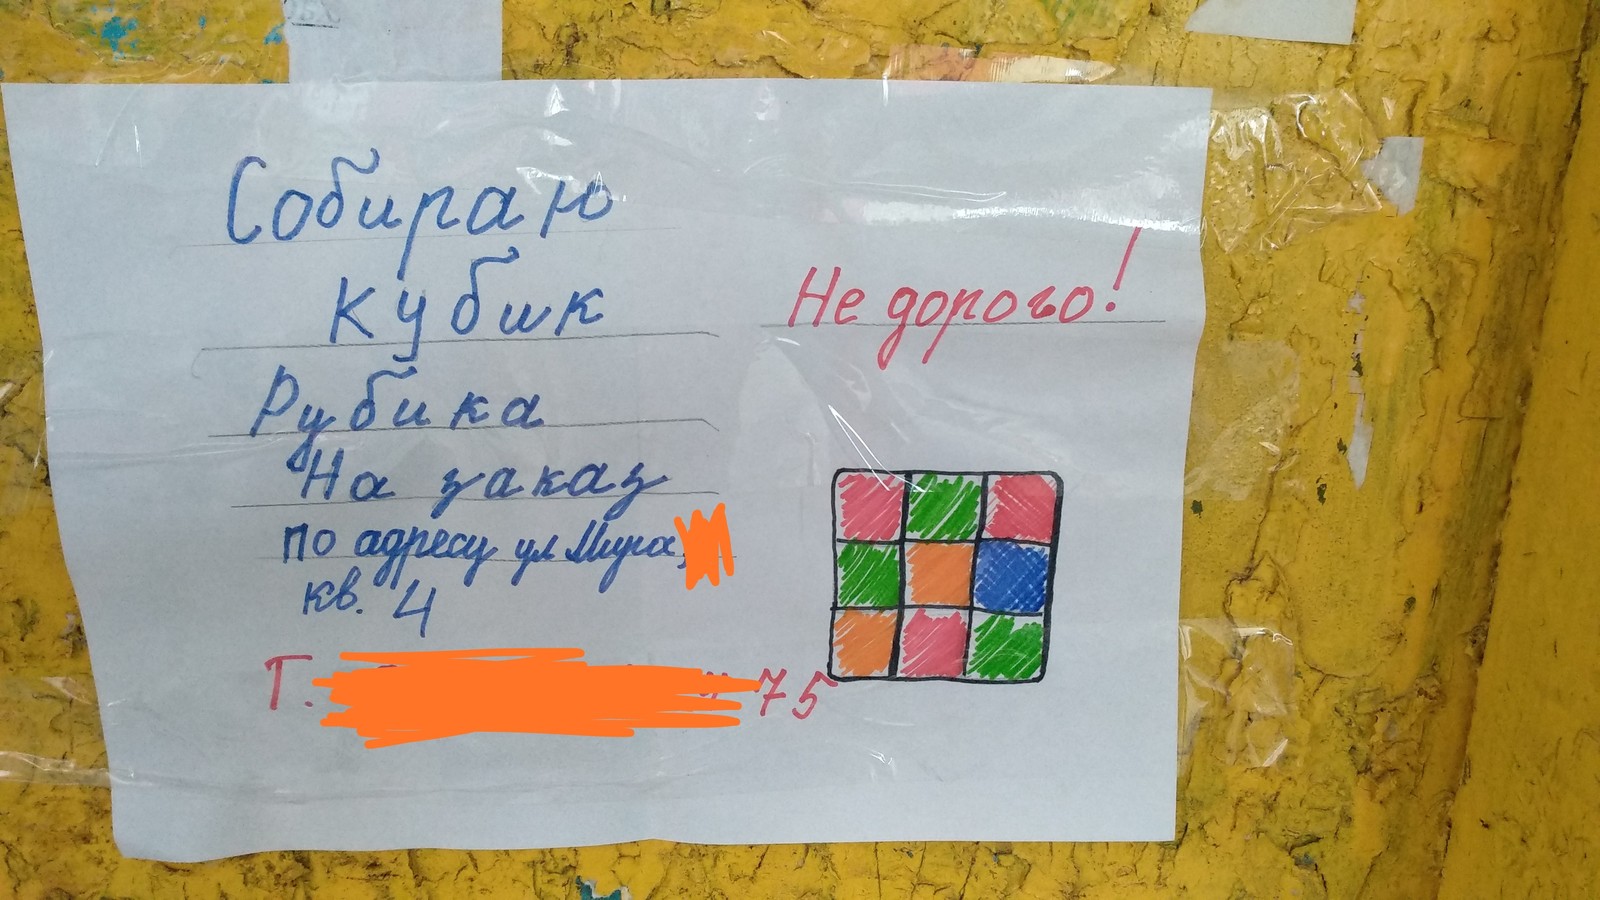 Собираю
кубик
Рубика
На заказ
по адресу ул Мира,
кв. 4
Т. 75
Не дорого!